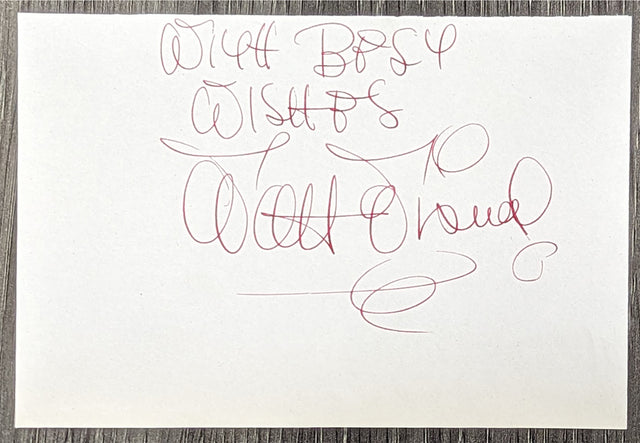 WITH BEST
WISHES
Walt